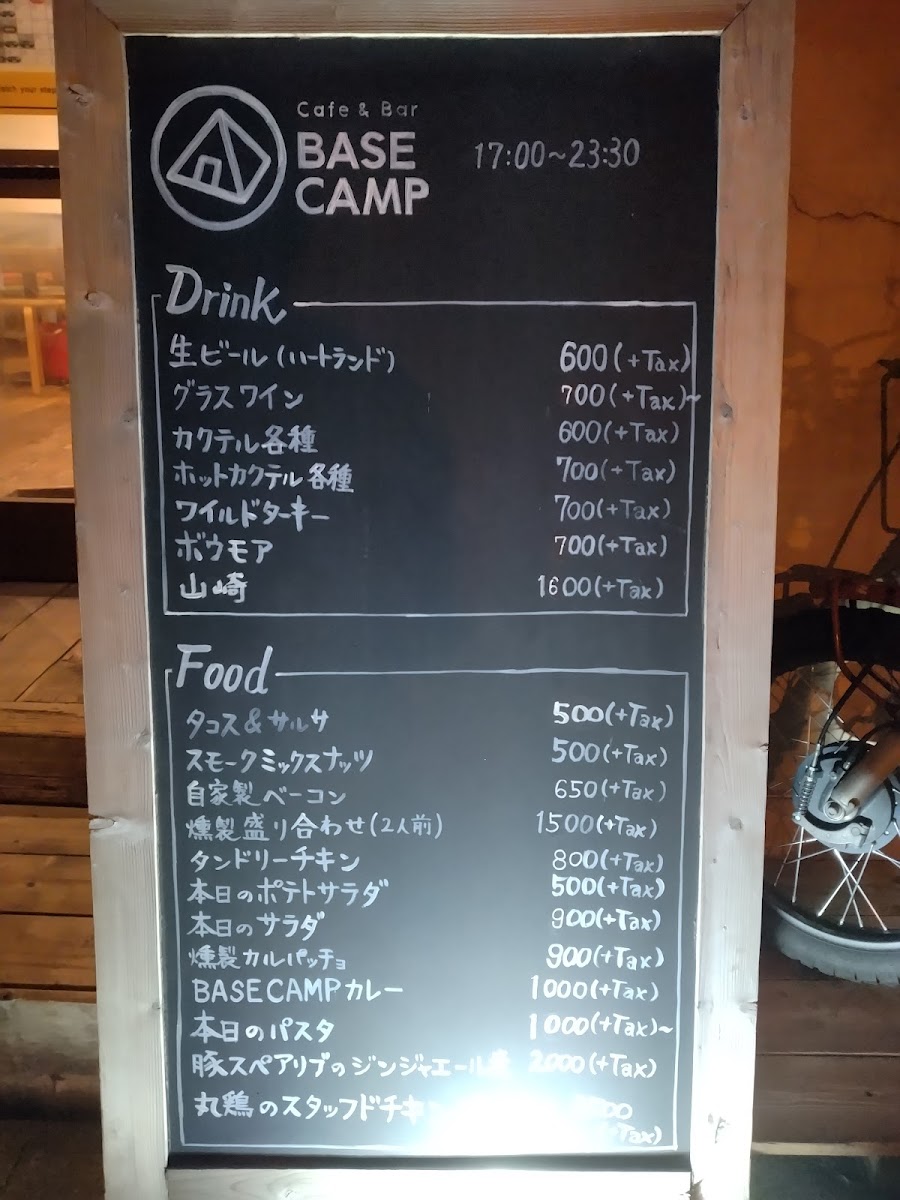 Cafe & Bar
BASE
CAMP
17:00~23:30
Drink
生ビール(ハートランド) 600(+Tax)
グラスワイン 700(+Tax)~
カクテル各種 600(+Tax)
ホットカクテル各種 700(+Tax)
ワイルドターキー 700(+Tax)
ボウモア 700(+Tax)
山崎 1600(+Tax)
Food
タコス&サルサ 500(+Tax)
スモークミックスナッツ 500(+Tax)
自家製ベーコン 650(+Tax)
燻製盛り合わせ(2人前) 1500(+Tax)
タンドリーチキン 800(+Tax)
本日のポテトサラダ 500(+Tax)
本日のサラダ 900(+Tax)
燻製カルパッチョ 900(+Tax)
BASE CAMPカレー 1000(+Tax)
本日のパスタ 1000(+Tax)~
豚スペアリブのジンジャエール 2000(+Tax)
丸鶏のスタッフドチキン